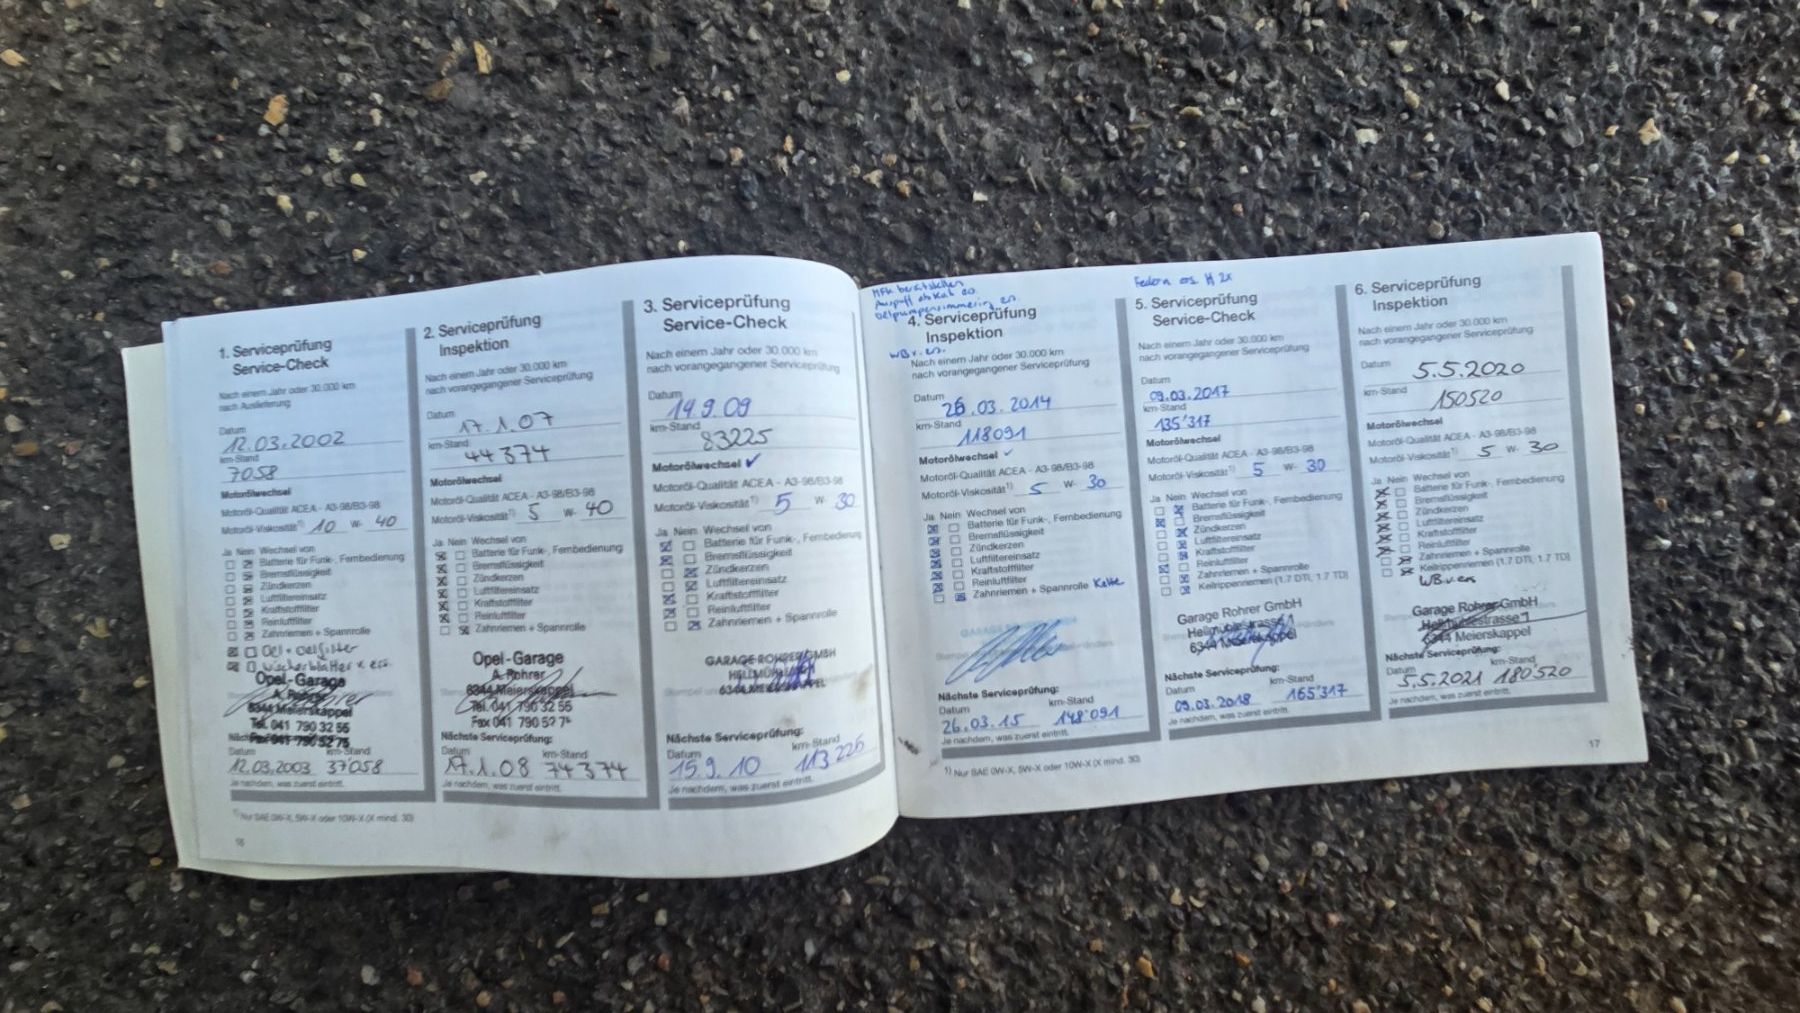 1. Serviceprüfung
Service-Check
Nach einem Jahr oder 30.000 km
nach Auslieferung
Datum
12.03.2002
km-Stand
7058
Motorölwechsel
Motoröl-Qualität ACEA - A3-98/B3-98
Motoröl-Viskosität¹) 10 W- 40
Ja Nein Wechsel von
Batterie für Funk-, Fernbedienung
Bremsflüssigkeit
Zündkerzen
Luftfiltereinsatz
Kraftstofffilter
Reinluftfilter
Zahnriemen + Spannrolle
Oel + oelfilter
Wischerblätter v ers.
Opel-Garage
A. Rohrer
6344 Meierskappel
Tel. 041 790 32 55
Fax 041 790 52 75
km-Stand
12.03.2003 37058
Je nachdem, was zuerst eintritt.
¹) Nur SAE 0W-X, 5W-X oder 10W-X (X mind. 30)
16
2. Serviceprüfung
Inspektion
Nach einem Jahr oder 30.000 km
nach vorangegangener Serviceprüfung
Datum
17.1.07
km-Stand
44374
Motorölwechsel
Motoröl-Qualität ACEA - A3-98/B3-98
Motoröl-Viskosität¹) 5 W- 40
Ja Nein Wechsel von
Batterie für Funk-, Fernbedienung
Bremsflüssigkeit
Zündkerzen
Luftfiltereinsatz
Kraftstofffilter
Reinluftfilter
Zahnriemen + Spannrolle
Opel-Garage
A. Rohrer
6344 Meierskappel
Tel. 041 790 32 55
Fax 041 790 52 75
Nächste Serviceprüfung:
Datum km-Stand
17.1.08 74374
Je nachdem, was zuerst eintritt.
3. Serviceprüfung
Service-Check
Nach einem Jahr oder 30.000 km
nach vorangegangener Serviceprüfung
Datum
14.9.09
km-Stand
83225
Motorölwechsel ✓
Motoröl-Qualität ACEA - A3-98/B3-98
Motoröl-Viskosität¹) 5 W- 30
Ja Nein Wechsel von
Batterie für Funk-, Fernbedienung
Bremsflüssigkeit
Zündkerzen
Luftfiltereinsatz
Kraftstofffilter
Reinluftfilter
Zahnriemen + Spannrolle
GARAGE ROHRER GMBH
6344 MEIERSKAPPEL
Nächste Serviceprüfung:
Datum km-Stand
15.9.10 113225
Je nachdem, was zuerst eintritt.
MFK bereitstellen
Auspuff ab Kat en.
Oelpumpensimmering en.
4. Serviceprüfung
Inspektion
WB v. ers.
Nach einem Jahr oder 30.000 km
nach vorangegangener Serviceprüfung
Datum
26.03.2014
km-Stand
118091
Motorölwechsel ✓
Motoröl-Qualität ACEA - A3-98/B3-98
Motoröl-Viskosität¹) 5 W- 30
Ja Nein Wechsel von
Batterie für Funk-, Fernbedienung
Bremsflüssigkeit
Zündkerzen
Luftfiltereinsatz
Kraftstofffilter
Reinluftfilter
Zahnriemen + Spannrolle Kette
Nächste Serviceprüfung:
Datum km-Stand
26.03.15 148'091
Je nachdem, was zuerst eintritt.
¹) Nur SAE 0W-X, 5W-X oder 10W-X (X mind. 30)
Federn es. H 2x
5. Serviceprüfung
Service-Check
Nach einem Jahr oder 30.000 km
nach vorangegangener Serviceprüfung
Datum
09.03.2017
km-Stand
135'317
Motorölwechsel
Motoröl-Qualität ACEA - A3-98/B3-98
Motoröl-Viskosität¹) 5 W- 30
Ja Nein Wechsel von
Batterie für Funk-, Fernbedienung
Bremsflüssigkeit
Zündkerzen
Luftfiltereinsatz
Kraftstofffilter
Reinluftfilter
Zahnriemen + Spannrolle
Keilrippenriemen (1.7 DTI, 1.7 TD)
Garage Rohrer GmbH
6344 Meierskappel
Nächste Serviceprüfung:
Datum km-Stand
09.03.2018 165'317
Je nachdem, was zuerst eintritt.
6. Serviceprüfung
Inspektion
Nach einem Jahr oder 30.000 km
nach vorangegangener Serviceprüfung
Datum 5.5.2020
km-Stand 150520
Motorölwechsel
Motoröl-Qualität ACEA - A3-98/B3-98
Motoröl-Viskosität¹) 5 W- 30
Ja Nein Wechsel von
Batterie für Funk-, Fernbedienung
Bremsflüssigkeit
Zündkerzen
Luftfiltereinsatz
Kraftstofffilter
Reinluftfilter
Zahnriemen + Spannrolle
Keilrippenriemen (1.7 DTI, 1.7 TD)
WB v. ers
Garage Rohrer GmbH
6344 Meierskappel
Nächste Serviceprüfung:
Datum km-Stand
5.5.2021 180520
Je nachdem, was zuerst eintritt.
17